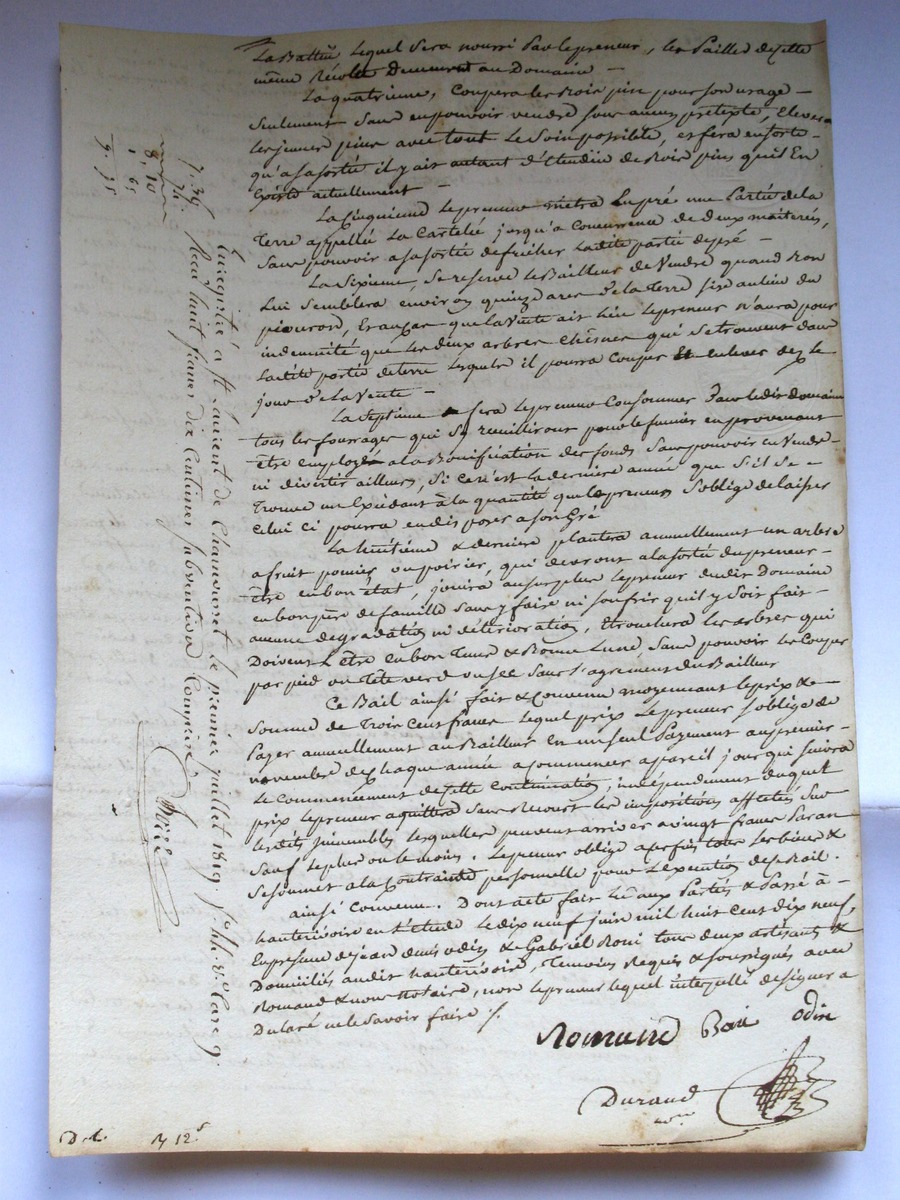 La Batteü lequel Sera nourri Par le preneur, les Pailles de cette
même Récolte Demeurent au Domaine —
La quatrieme, Coupera les Bois pin pour son usage —
Seulement Sans en pouvoir vendre sous aucun prétexte, Elevera
les jeunes pins avec tout le Soin possible, et fera en sorte —
qu'a sa sortie il y ait autant d'Etendüe de Bois pins qu'il En
Existe actuellement —
La Cinquieme Le preneur mettra En pré une Partie de la
Terre appellée La Cartelée jusqu'a Concurrence de deux maiterées,
Sans pouvoir a sa sortie defricher Ladite partie de pré —
La Sixieme, Se reserve le Bailleur de Vendre quand Bon
Lui Semblera environ quinze ares De la Terre sise au lieu du
, En au cas que la Vente ait Lieu Le preneur n'aura pour
indemnité que les deux arbres Chesnes qui Se trouvent dans
Ladite partie de terre Lesquels il pourra Couper Et enlever dez le
jour De la Vente —
La Septieme Sera Le preneur Consommer Dans ledit domaine
tous les fourrages qui S'y recuilliront pour le fumier en provenant
être employé a la Bonification des fonds Sans pouvoir en Vendre
ni divertir ailleurs, Si ce n'est la derniere année que S'il Se —
Trouve un Excédant à la quantité que le preneur S'oblige de laisser
Celui Ci pourra en disposer a son Gré
La huitieme & derniere plantera annuellement un arbre
a fruit pomier ou poirier, qui devront a la sortie du preneur —
être en bon état, jouira au surplus le preneur dudit Domaine
en bon père de famille sans y faire ni soufrir qu'il y Soit fait —
aucune degradation ni détérioration, Etronchera les arbres qui
Doivent L'être en bon Tems & Bonne Lune, Sans pouvoir les Couper
par pied ou Tête verd ou sec Sans l'agrement du Bailleur
Ce Bail ainsi fait & Convenu moyennant le prix &
Somme de Trois Cent francs lequel prix Le preneur S'oblige de
Payer annuellement au Bailleur En un seul Payement au premier —
novembre de Chaque année a commencer a pareil jour qui suivra
Le Commencement de cette Continuation ; indépendament duquel
prix le preneur aquittera Sans Recourt les impositions affectées Sur
lesdits immeubles lesquelles peuvent arriver a vingt francs Par an
Sauf le plus ou le moins. Le preneur oblige a ces fins tous ses biens &
Se Soumet a la Contrainte personnelle pour L'execution du Bail.
ainsi Convenu. Dont acte fait Lu aux Parties & Passé à —
hauterivoire en L'Etude Le dix neuf juin mil huit cent dix neuf,
En presence de jean denis odin & Gabriel Boni tous deux artisans &
Domiciliés audit hauterivoire, Temoins Requis & Soussignés avec
Romand & nous Notaire, non le preneur lequel interpellé de signer a
Declaré ne le savoir faire ./.
Romand Boni odin
Durand
nore
Enregistré à St Laurent de Chamousset le premier juillet 1819 f°
Recu huit francs dix Centimes Subvention Comprise
7. 39
74.
8, 10
1, 65
9. 75
D. t. 12 s